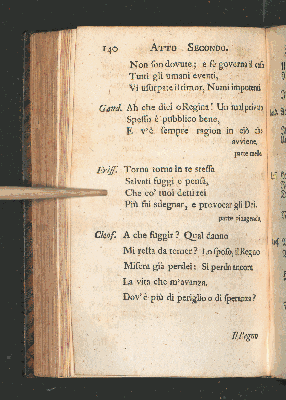 140 ATTO SECONDO.
Non son dovute; e se governa il caso
Tutti gli umani eventi,
Vi usurpate il timor, Numi impotenti
Gaud. Ah che dici o Regina! Un mal privato
Spesso è pubblico bene,
E v'è sempre ragion in ciò che
avviene,
parte
Briss. Torna torna in te stessa
Salvati fuggi e pensa,
Che co' tuoi detti rei
Più fai sdegnar, e provocar gli Dei.
parte piangendo
Cleof. A che fuggir? Qual danno
Mi resta da temer? Lo sposo, il Regno
Misera già perdei: Si perda ancora
La vita che m'avanza.
Dov'è più di periglio o di speranza?
Il Regno